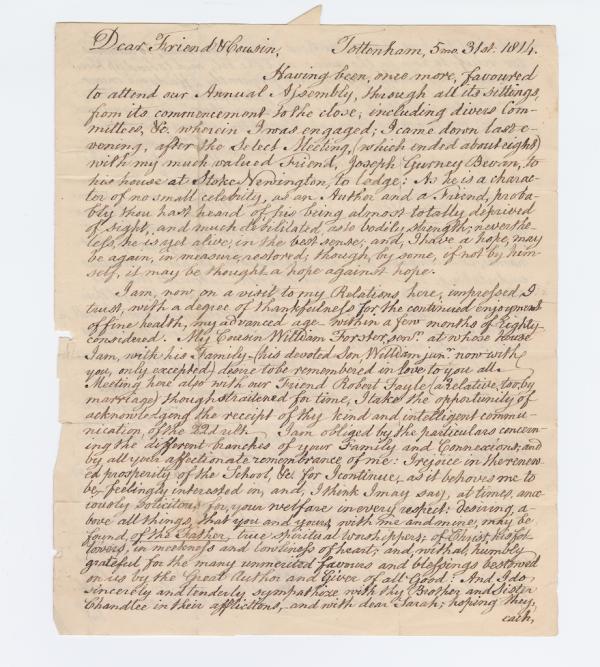 Dear Friend & Cousin, Tottenham, 5mo. 31st. 1814.
Having been, once more, favoured
to attend our Annual Assembly, through all its sittings,
from its commencement to the close, including divers Com-
mittees, &c. wherein I was engaged; I came down last e-
vening, after the Select Meeting, (which ended about eight)
with my much valued Friend, Joseph Gurney Bevan, to
his house at Stoke Newington, to lodge: As he is a charac-
ter of no small celebrity, as an Author and a Friend, proba-
bly thou hast heard of his being almost totally deprived
of sight, and much debilitated, as to bodily strength; neverthe-
less, he is yet alive, in the best sense; and, I have a hope, may
be again, in measure, restored; though, by some, if not by him-
self, it may be thought a hope against hope.
I am, now on a visit to my Relations here, impressed I
trust, with a degree of thankfulness for the continued enjoyment
of fine health, my advanced age within a few months of Eighty
considered. My Cousin William Forster, senr. at whose house
I am, with his Family (his devoted Son, William junr. now with
you, only excepted) desire to be remembered in love to you all.
Meeting here also with our Friend Robert Fayle (a Relative, too, by
marriage) though straitened for time, I take the opportunity of
acknowledging the receipt of thy kind and intelligent commu-
nication, of the 22d ult. I am obliged by the particulars concern-
ing the different branches of your Family and Connexions; and
by all your affectionate remembrance of me: I rejoice in the renew-
ed prosperity of the School, &c for I continue, as it behoves me to
be, feelingly interested in, and, I think I may say, at times, anx-
iously solicitous for, your welfare in every respect: desiring, a-
bove all things, that you and yours, with me and mine, may be
found, of the Father, true spiritual worshippers; of Christ, his fol-
lowers, in meekness and lowliness of heart; and withal, humbly
grateful for the many unmerited favours and blessings bestowed
on us by the Great Author and Giver of all Good: And I do
sincerely and tenderly sympathize with thy Brother and Sister
Chandlee in their afflictions, and with dear Sarah; hoping they,
each,